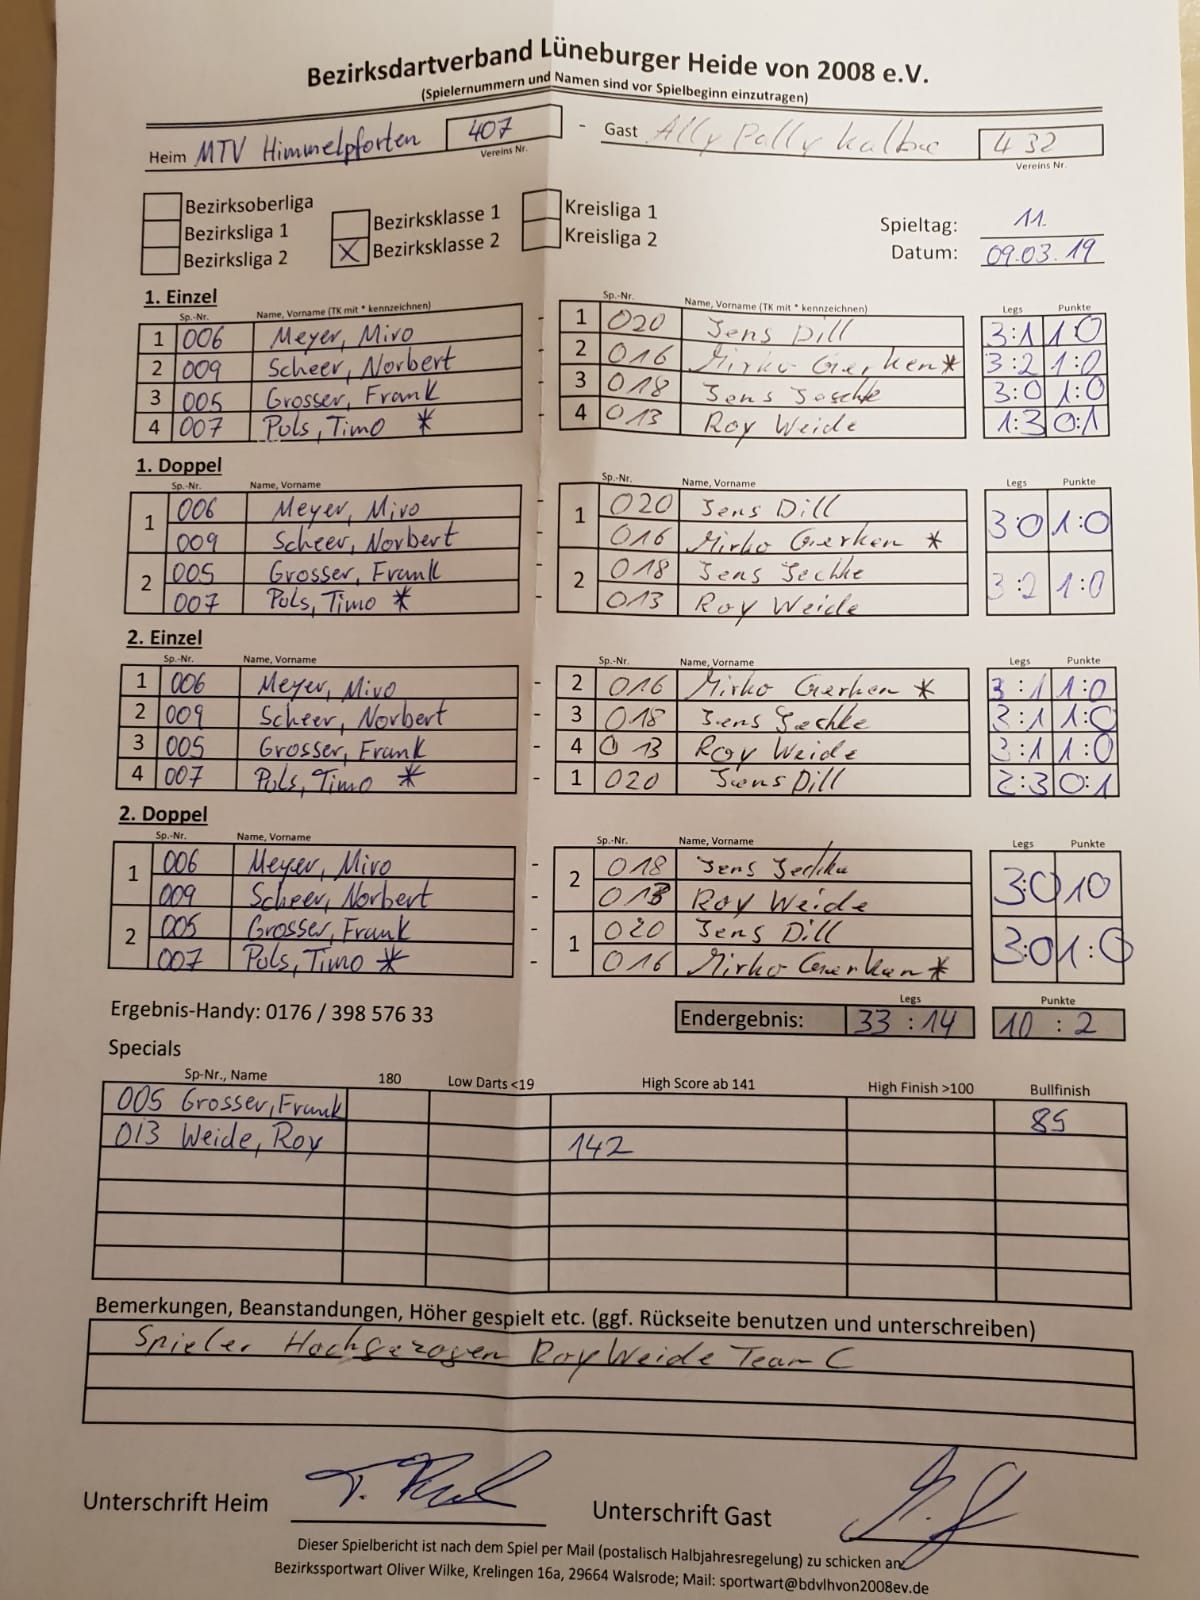 Bezirksdartverband Lüneburger Heide von 2008 e.V.
(Spielernummern und Namen sind vor Spielbeginn einzutragen)
Heim MTV Himmelpforten 407 - Gast Ally Pally Kalbe 432
Vereins Nr. Vereins Nr.
Bezirksoberliga
Bezirksliga 1
Bezirksliga 2
Bezirksklasse 1
X Bezirksklasse 2
Kreisliga 1
Kreisliga 2
Spieltag: 11.
Datum: 09.03.19
1. Einzel
Sp.-Nr. Name, Vorname (TK mit * kennzeichnen) Sp.-Nr. Name, Vorname (TK mit * kennzeichnen) Legs Punkte
1 006 Meyer, Miro - 1 020 Jens Dill 3:1 1:0
2 009 Scheer, Norbert - 2 016 Mirko Gerken * 3:2 1:0
3 005 Grosser, Frank - 3 018 Jens Jaschke 3:0 1:0
4 007 Puls, Timo * - 4 013 Roy Weide 1:3 0:1
1. Doppel
Sp.-Nr. Name, Vorname Sp.-Nr. Name, Vorname Legs Punkte
1 006 Meyer, Miro - 1 020 Jens Dill 3:0 1:0
009 Scheer, Norbert - 016 Mirko Gerken *
2 005 Grosser, Frank - 2 018 Jens Jechke 3:2 1:0
007 Puls, Timo * - 013 Roy Weide
2. Einzel
Sp.-Nr. Name, Vorname Sp.-Nr. Name, Vorname Legs Punkte
1 006 Meyer, Miro - 2 016 Mirko Gerken * 3:1 1:0
2 009 Scheer, Norbert - 3 018 Jens Jechke 3:1 1:0
3 005 Grosser, Frank - 4 013 Roy Weide 3:1 1:0
4 007 Puls, Timo * - 1 020 Jens Dill 2:3 0:1
2. Doppel
Sp.-Nr. Name, Vorname Sp.-Nr. Name, Vorname Legs Punkte
1 006 Meyer, Miro - 2 018 Jens 3:0 10
009 Scheer, Norbert - 013 Roy Weide
2 005 Grosser, Frank - 1 020 Jens Dill 3:0 1:0
007 Puls, Timo * - 016 Mirko Gerken *
Ergebnis-Handy: 0176 / 398 576 33
Legs Punkte
Endergebnis: 33 : 14 10 : 2
Specials
Sp-Nr., Name 180 Low Darts <19 High Score ab 141 High Finish >100 Bullfinish
005 Grosser, Frank 85
013 Weide, Roy 142
Bemerkungen, Beanstandungen, Höher gespielt etc. (ggf. Rückseite benutzen und unterschreiben)
Spieler Hochgezogen Roy Weide Team C
Unterschrift Heim
Unterschrift Gast
Dieser Spielbericht ist nach dem Spiel per Mail (postalisch Halbjahresregelung) zu schicken an
Bezirkssportwart Oliver Wilke, Krelingen 16a, 29664 Walsrode; Mail: sportwart@bdvlhvon2008ev.de